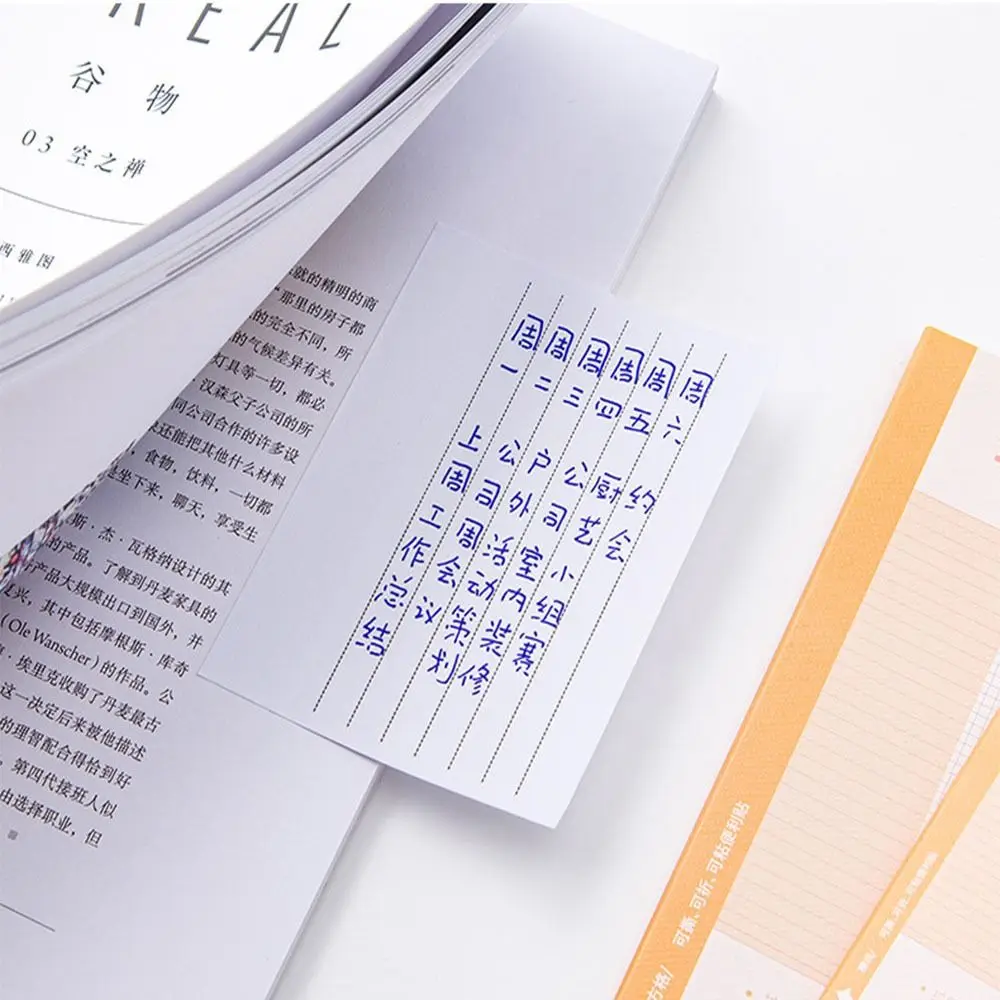 REAL
谷物
03 空之禅
西雅图
就的精明的商
“那里的房子都
的完全不同，所
的气候差异有关。
灯具等一切，都必
汉森父子公司的所
同公司合作的许多设
还能把其他什么材料
食物，饮料，一切都
是坐下来，聊天，享受生
斯·杰·瓦格纳设计的其
产品。了解到丹麦家具的
产品大规模出口到国外，并
兴，其中包括摩根斯·库奇
(Ole Wanscher) 的作品。公
·埃里克收购了丹麦最古
这一决定后来被他描述
的理智配合得恰到好
第四代接班人似
由选择职业，但
周一 上周工作总结
周二 公司周会议
周三 户外活动策划
周四 公司室内装修
周五 厨艺小组赛
周六 约会
方格/ 可撕、可折、可粘便利贴